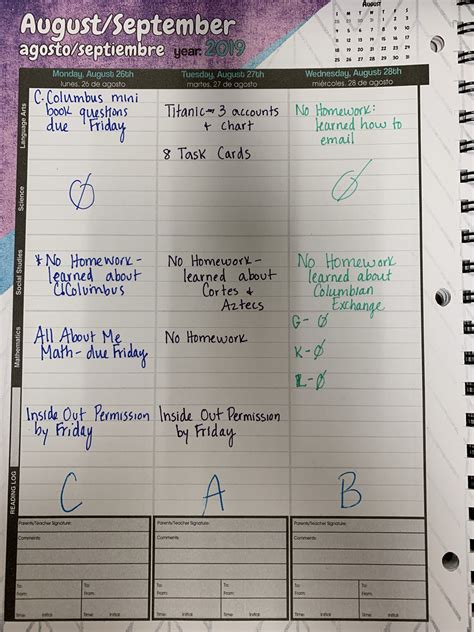 August/September
agosto/septiembre year: 2019
AUGUST
Monday, August 26th
lunes, 26 de agosto
Tuesday, August 27th
martes, 27 de agosto
Wednesday, August 28th
miércoles, 28 de agosto
Language Arts
C. Columbus mini
book questions
due Friday
Titanic → 3 accounts
+ chart
8 Task Cards
No Homework:
learned how to
email
Science
Ø
Ø
Social Studies
* No Homework -
learned about
C. Columbus
No Homework -
learned about
Cortes &
Aztecs
No Homework
learned about
Columbian
Exchange
G - Ø
K - Ø
L - Ø
Mathematics
All About Me
Math - due Friday
No Homework
Inside Out Permission
by Friday
Inside Out Permission
by Friday
READING LOG
C
A
B
Parents/Teacher Signature:
Comments:
To:
From:
To:
From:
Time:
Initial:
Time:
Initial:
Parents/Teacher Signature:
Comments:
To:
From:
To:
From:
Time:
Initial:
Time:
Initial:
Parents/Teacher Signature:
Comments:
To:
From:
To:
From:
Time:
Initial:
Time:
Initial: